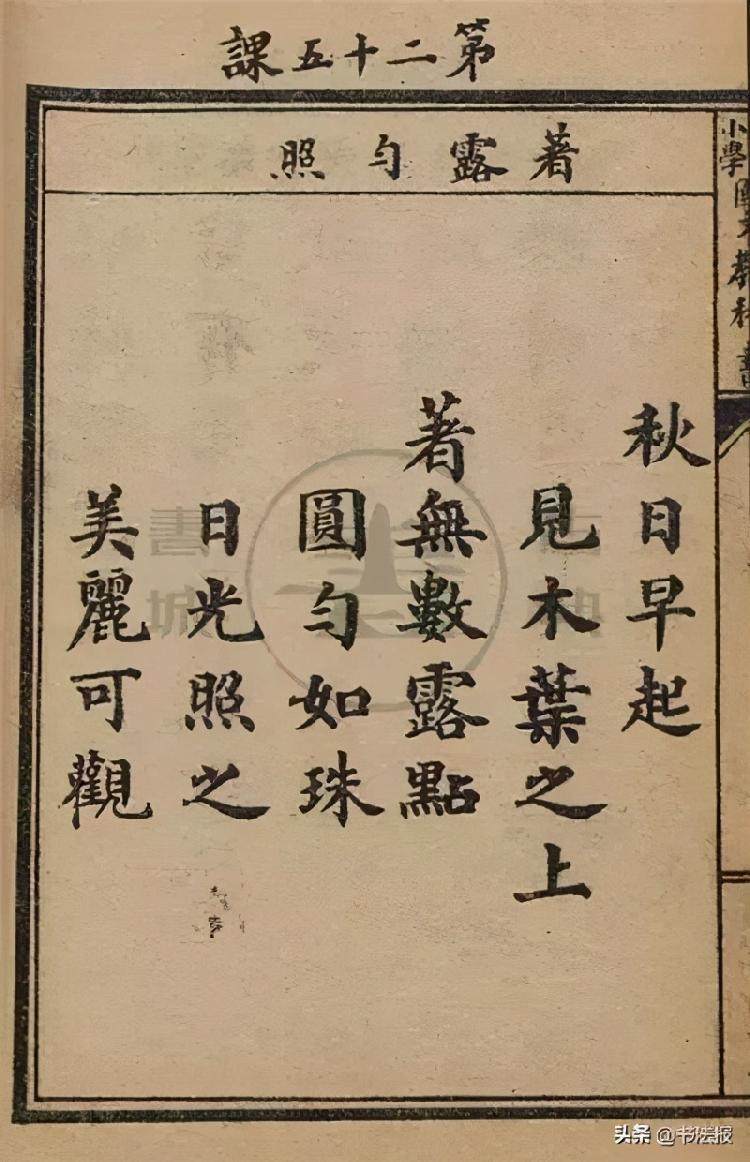 第二十五課
著露勻照
小學國文教科書
秋日早起
見木葉之上
著無數露點
圓勻如珠
日光照之
美麗可觀
書城
头条 @书法报